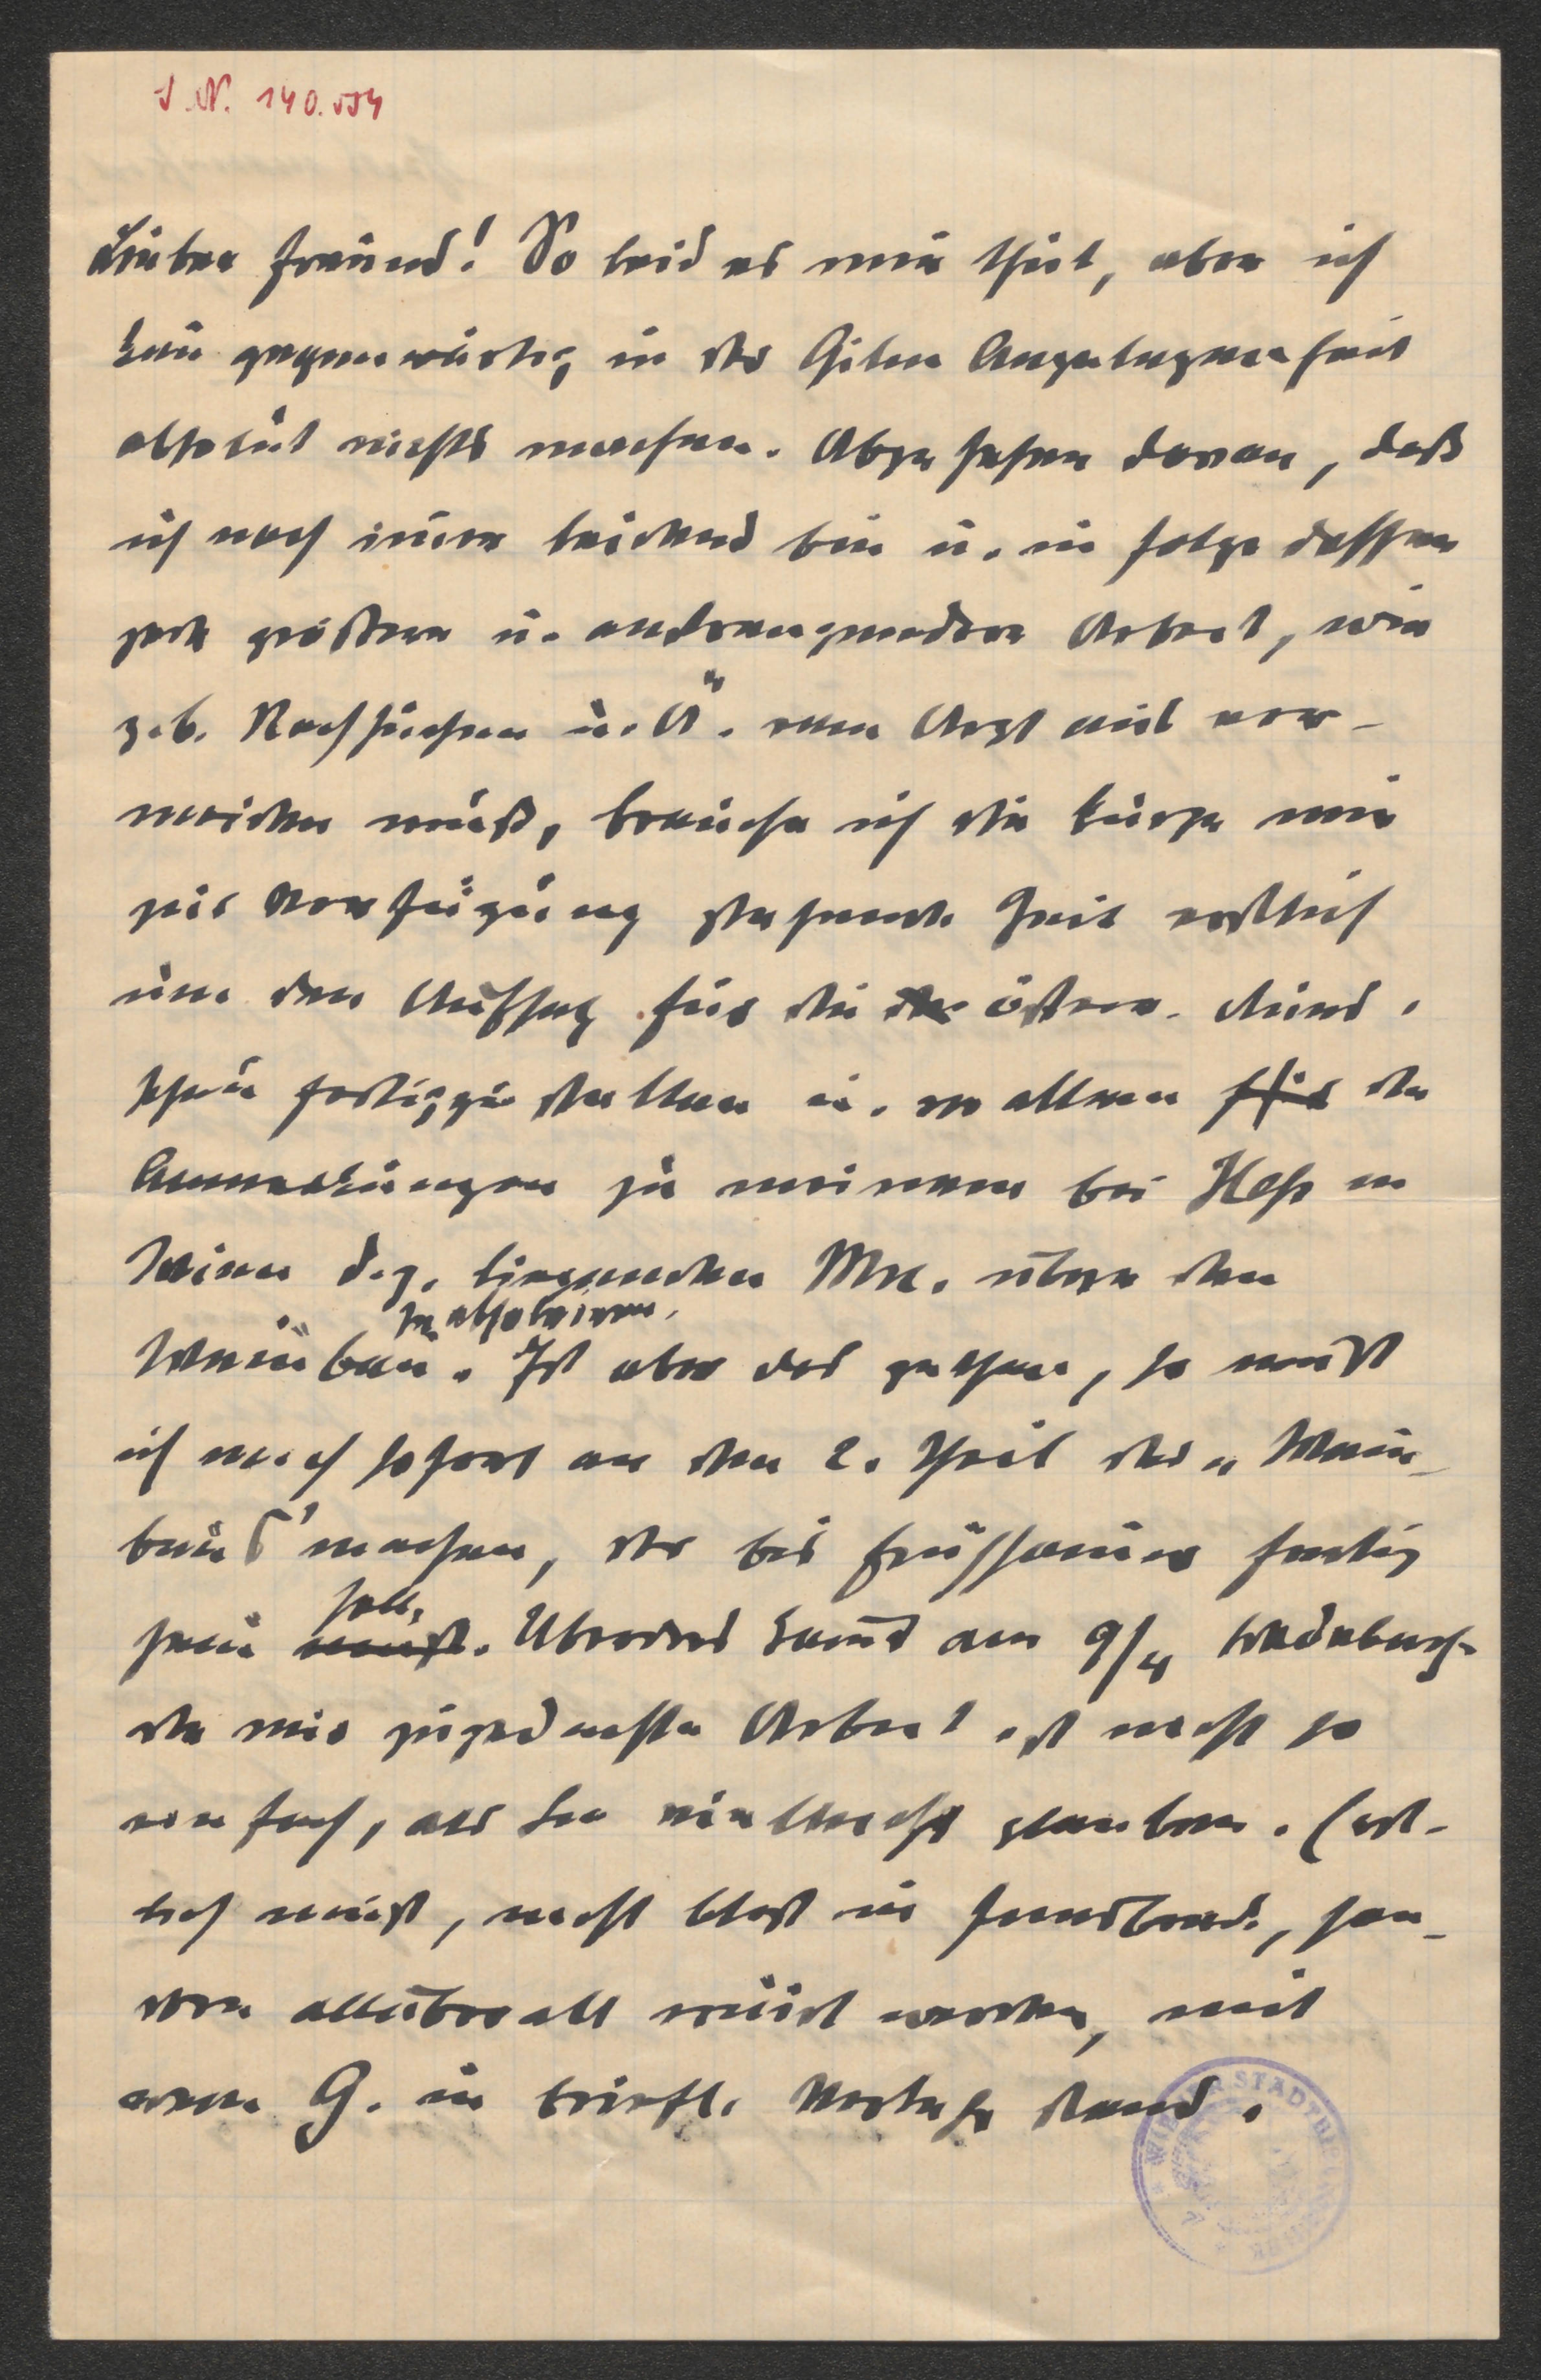 I. N. 140.554
Lieber Freund! So leid es mir thut, aber ich
kan̅ gegenwärtig in der Gilm Angelegenheit
absolut nichts machen. Abgesehen davon, daß
ich noch im̅er leidend bin u. in Folge dessen
jede größere u. anstrengendere Arbeit, wie
z. b. Nachsuchen u. Ä. vom Arzt aus ver-
meiden muß, brauche ich die kurze mir
zur Verfügung stehende Zeit restlich
um den Aufsatz für die österr. Rund.
schau fertigzustellen u. vor allem die
Anmerkungen zu meinem bei Hess in
d. g. liegenden Mn. über den
Weinbau. Ist aber das gethan, so muß
zu absolviren.
ich mich sofort an den 2. Theil des „Wein-
bau's" machen, der bis Frühsom̅er fertig
sein soll. Überdies kom̅t am 9/4
die mir zugedachte Arbeit ist nicht so
einfach, als Sie vielleicht glauben. Erst-
lich muß, nicht bloß in Innsbruck, son-
dern allüberall eruirt werden, mit
wem G. in briefl. Verkehr stand.
WIENER STADTBIBLIOTHEK